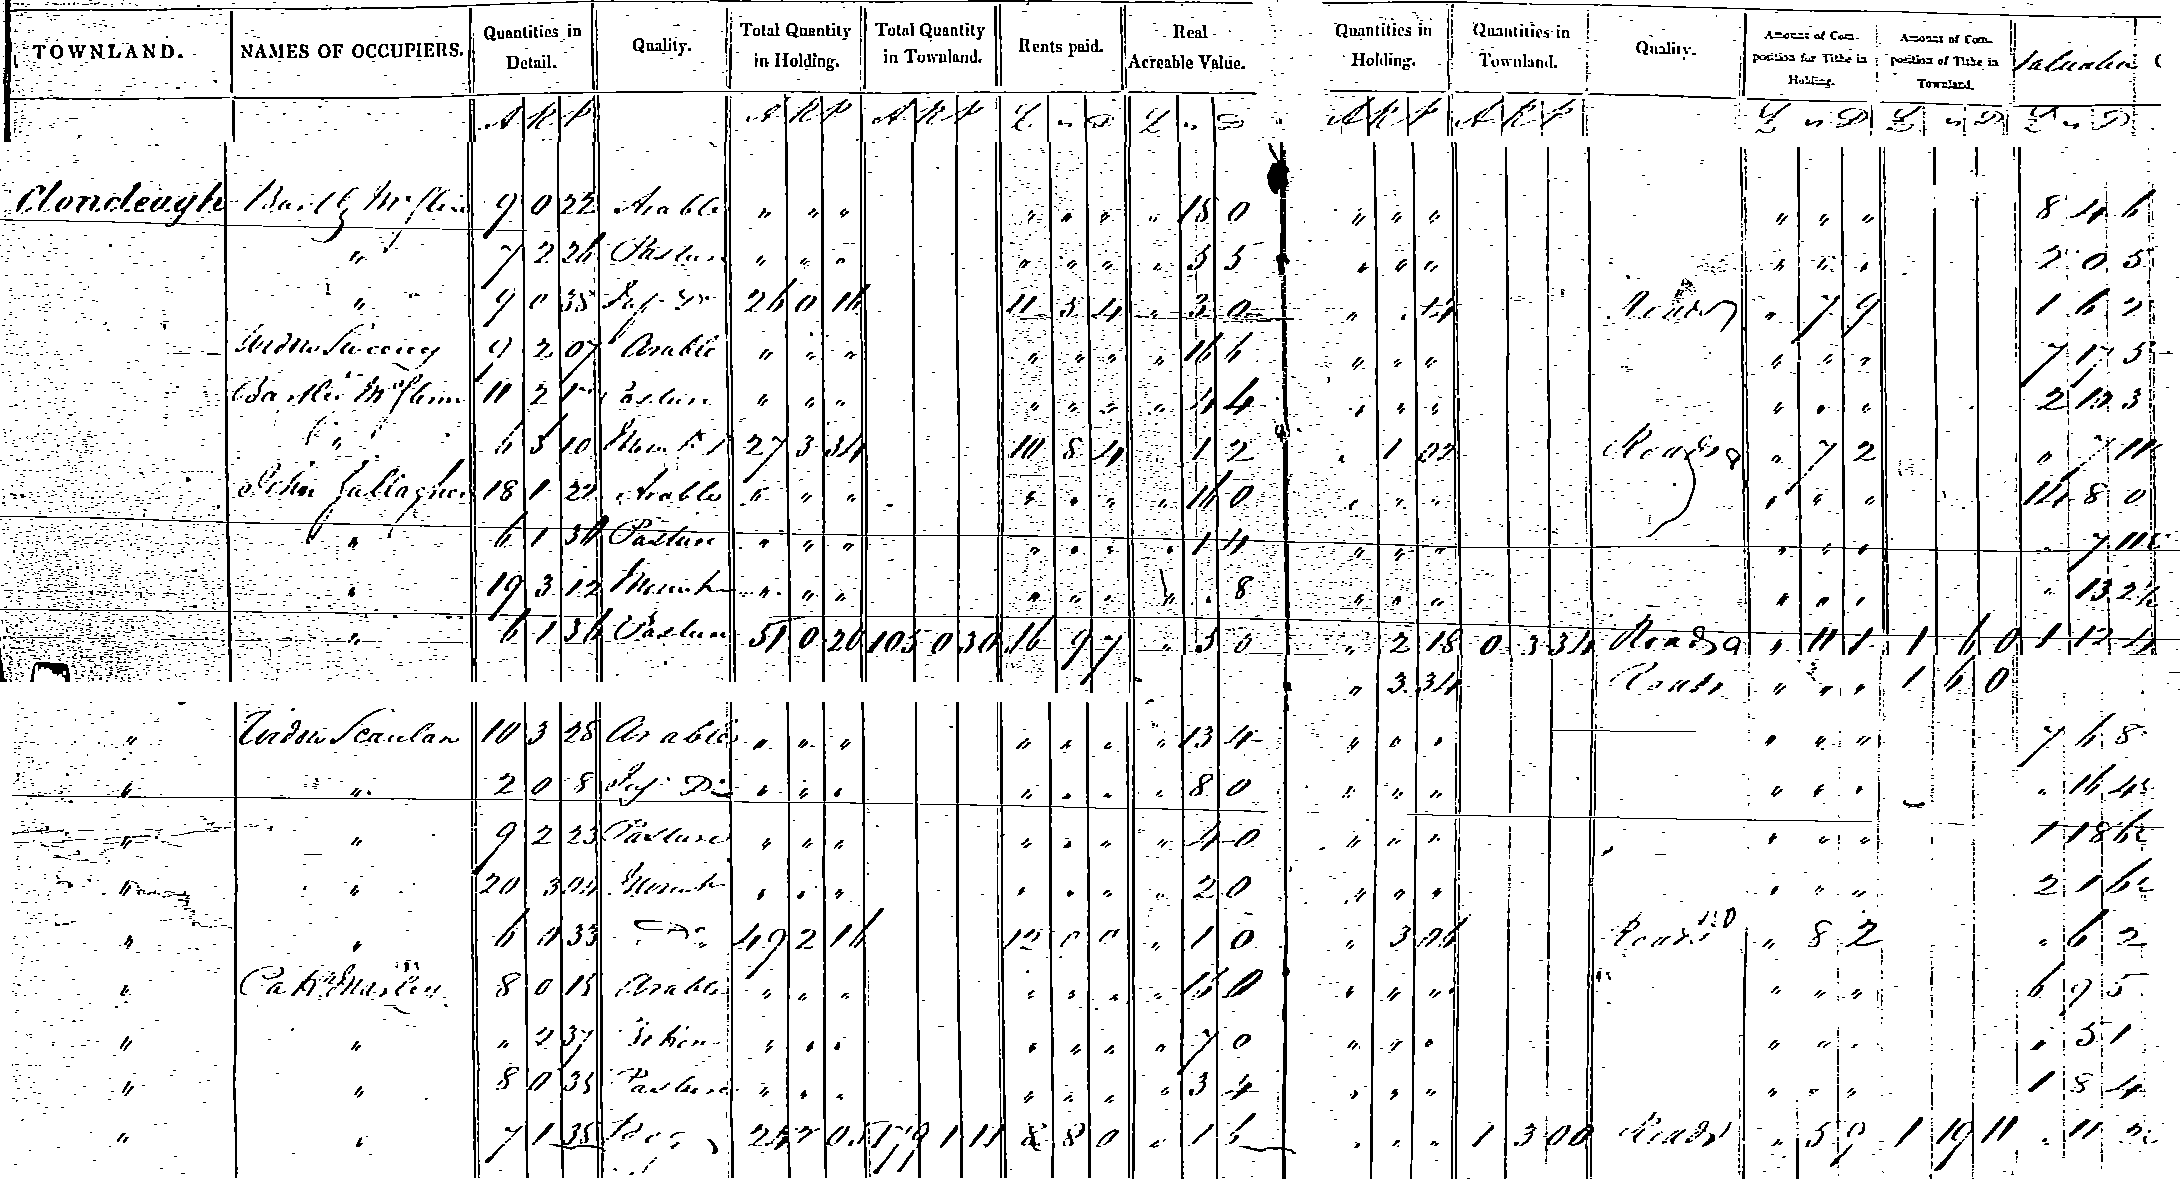 TOWNLAND. NAMES OF OCCUPIERS. Quantities in Detail. Quality. Total Quantity in Holding. Total Quantity in Townland. Rents paid. Real Acreable Value. Quantities in Holding. Quantities in Townland. Quality. Amount of Composition for Tithe in Holding. Amount of Composition of Tithe in Townland. Valuation
A R P A R P A R P £ s D £ s D A R P A R P £ s D £ s D £ s D
Clondeugh 9 0 22 Arable " " " " " " " 18 0 " " " " " " 8 4 6
" 7 2 26 Pasture " " " " " " " 5 5 " " " " " " 2 0 5
" 9 0 35 26 0 16 11 5 4 " 3 0 " . 14 Roads " 7 9 1 6 2
Widow Sweeney 9 2 07 Arable " " " " " " " 16 6 " " " " " " 7 17 5
11 2 Pasture " " " " " " " 4 4 " " " " " " 2 3
" 6 3 10 27 3 34 10 8 4 " 1 2 " 1 02 Roads " 7 2 " 7 11
John Gallagher 18 1 22 Arable " " " " " " " 16 0 " " " " " " 14 8 0
" 6 1 36 Pasture " " " " " " " 1 4 " " " " " " " 7 11
" 19 3 12 Mount " " " " " " " . 8 " " " " " " " 13 2½
" 6 1 36 Pasture 51 0 20 105 0 30 16 9 7 " 5 0 " 2 18 0 3 34 Roads " 11 1 1 6 0 1 12 4
" 3 34 Roads " " " 1 6 0
" Widow Scanlan 10 3 28 Arable " " " " " " " 13 4 " " " " " " 7 6 8
" " 2 0 8 " " " " " " " 8 0 " " " " " " " 16 4
" " 9 2 23 Pasture " " " " " " " 4 0 " " " " " " 1 18 6
" " 20 3 04 Mount " " " " " " " 2 0 " " " " " " 2 1 6
" " 6 0 33 Do 49 2 16 12 0 0 " 1 0 " 3 06 Roads " 8 2 " 6 2
" 8 0 15 Arable " " " " " " " 16 0 " " " " " " 6 9 5
" " " 2 37 " " " " " " " 7 0 " " " " " " " 5 1
" " 8 0 35 Pasture " " " " " " " 3 4 " " " " " " 1 8 4
" " 7 1 38 Bog 179 1 11 8 8 0 " 1 6 " " " 1 3 00 Roads " 5 9 1 19 11 " 11